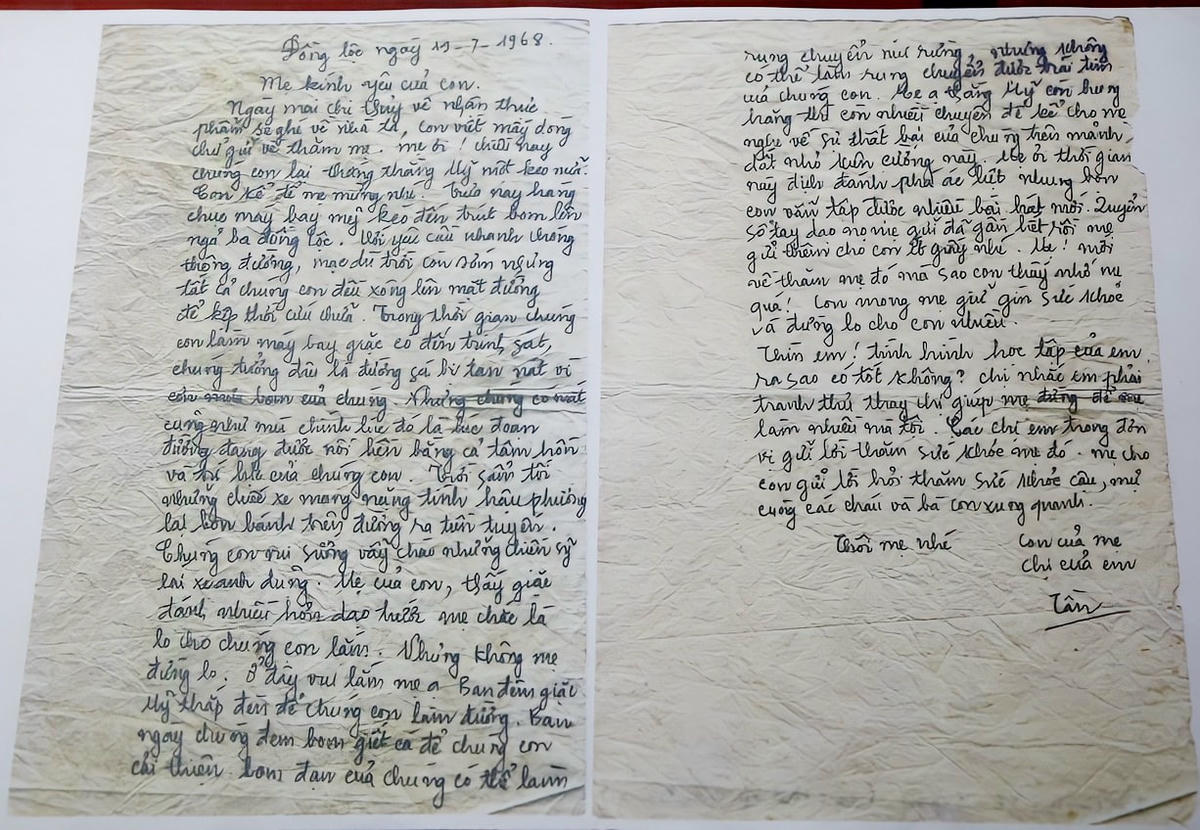 Đồng lộc ngày 19-7-1968.
Mẹ kính yêu của con.
Ngày mai chị thủy về nhận thực
phẩm sẽ ghé về nhà ta, con viết mấy dòng
chữ gửi về thăm mẹ. mẹ ơi! chiều nay
chúng con lại thắng thằng Mỹ một keo nữa.
Con kể để mẹ mừng nhé. Trưa nay hàng
chục máy bay mỹ kéo đến trút bom lên
ngã ba đồng lộc. Với yêu cầu nhanh chóng
thông đường, mặc dù trời còn sớm nhưng
tất cả chúng con đều xông lên mặt đường
để kịp thời cứu chữa. Trong thời gian chúng
con làm máy bay giặc có đến trinh sát,
chúng tưởng đâu là đường sá bị tan nát vì
bom của chúng. Nhưng chúng có
cũng như mù chính lúc đó là lúc đoạn
đường đang được nối liền bằng cả tâm hồn
và trí lực của chúng con. Trời sẩm tối
những chiếc xe mang nặng tình hậu phương
lại bon bánh trên đường ra tiền tuyến.
Chúng con vui sướng vẫy chào những chiến sỹ
lái xe anh dũng. Mẹ của con, thấy giặc
đánh nhiều hơn dạo trước mẹ chắc là
lo cho chúng con lắm. Nhưng không mẹ
đừng lo. Ở đây vui lắm mẹ ạ Ban đêm giặc
Mỹ thắp đèn để chúng con làm đường. Ban
ngày chúng đem bom giết cá để chúng con
cải thiện bom đạn của chúng có thể làm
rung chuyển núi rừng, nhưng không
có thể làm rung chuyển được trái tim
của chúng con. Mẹ ạ thằng Mỹ còn hung
hăng thì còn nhiều chuyện để kể cho mẹ
nghe về sự thất bại của chúng trên mảnh
đất nhỏ kiên cường này. Mẹ ơi thời gian
này địch đánh phá ác liệt nhưng bọn
con vẫn tập được nhiều bài hát mới. Quyển
sổ tay dạo nọ mẹ gửi đã gần hết rồi mẹ
gửi thêm cho con ít giấy nhé. Mẹ! mới
về thăm mẹ đó mà sao con thấy nhớ mẹ
quá! Con mong mẹ giữ gìn sức khỏe
và đừng lo cho con nhiều.
Thìn em! tình hình học tập của em
ra sao có tốt không? chị nhắc em phải
tranh thủ thay chị giúp mẹ đừng để mẹ
làm nhiều mà tội. Các chị em trong đơn
vị gửi lời thăm sức khỏe mẹ đó. mẹ cho
con gửi lời hỏi thăm sức khỏe cậu, mự
cùng các cháu và bà con xung quanh.
Thôi mẹ nhé
Con của mẹ
chị của em
Tần